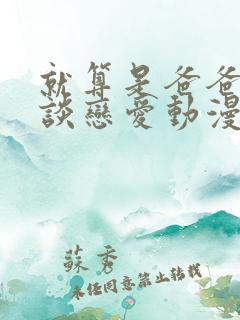 就算是爸爸
談戀愛動漫
蘇秀
未經同意禁止轉載